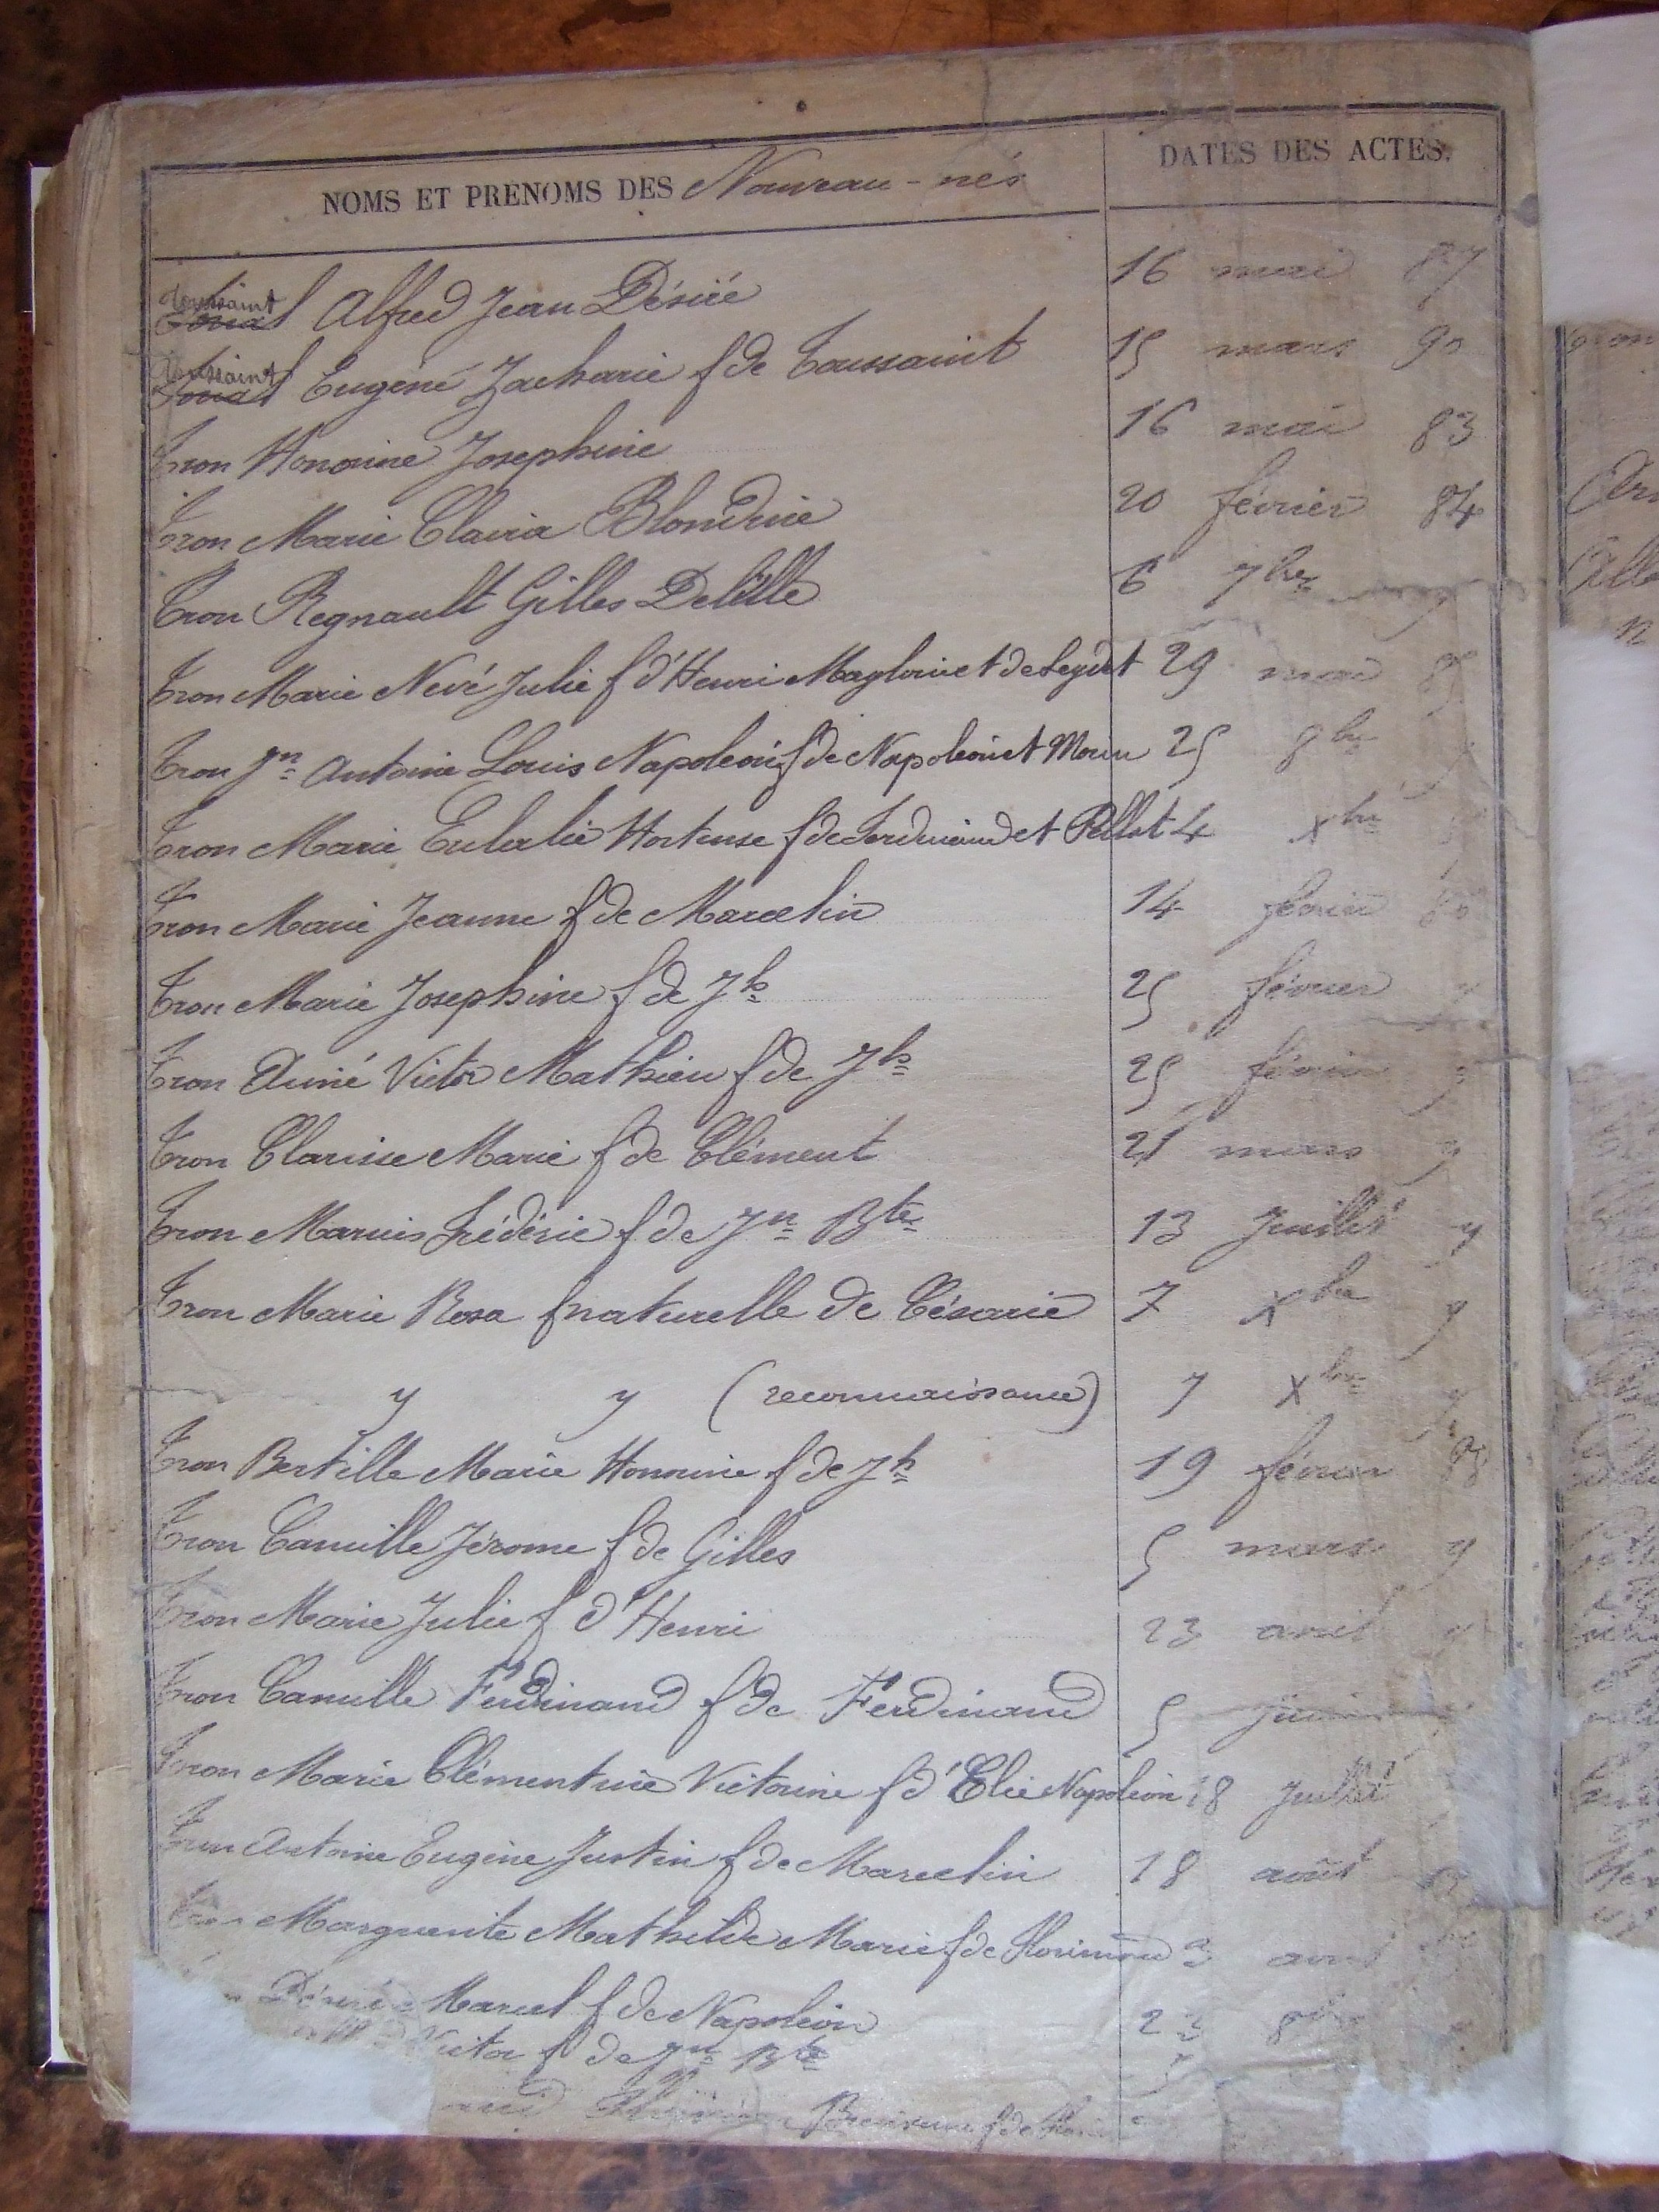 NOMS ET PRÉNOMS DES Nouveau-nés DATES DES ACTES.
Toussaint
Alfred Jean Désiré 16 mai 87
Toussaint
Eugéné Zacharie f de Toussaint 15 mars 90
Tron Honorine Josephine 16 mai 83
Tron Marie Claira Blondine 20 février 84
Tron Regnault Gilles Delille 6 7bre y
Tron Marie Nevé Julie f d'Henri Magloire et de 29 mai 85
Tron Jn Antoine Louis Napoléon f de Napoléon et 25 8bre
Tron Marie Eulalie Hortense f de Ferdinand et Pellat 4 xbre
Tron Marie Jeanne f de Marcelin 14 février
Tron Marie Josephine f de Jh 25 février y
Tron Aimé Victor Mathieu f de Jh 25 février y
Tron Clarisse Marie f de Clément 21 mars y
Tron Marius Frédéric f de Jn Bte 13 Juillet y
Tron Marie Rosa f naturelle de Césarie 7 xbre y
y y (reconnaissance) 7 xbre y
Tron Bertille Marie Honorine f de Jh 19 février
Tron Camille Jérome f de Gilles 5 mars y
Tron Marie Julie f d'Henri 23 avril y
Tron Camille Ferdinand f de Ferdinand 5 Juin
Tron Marie Clémentine Victorine f d'Elie Napoléon 18 Juillet
Tron Antoine Eugène Justin f de Marcelin 18 août
Tron Marguerite Mathilde Marie f de Florimond
Désiré Marcel f de Napoléon 23 8bre
Victor f de Jn Bte
f de